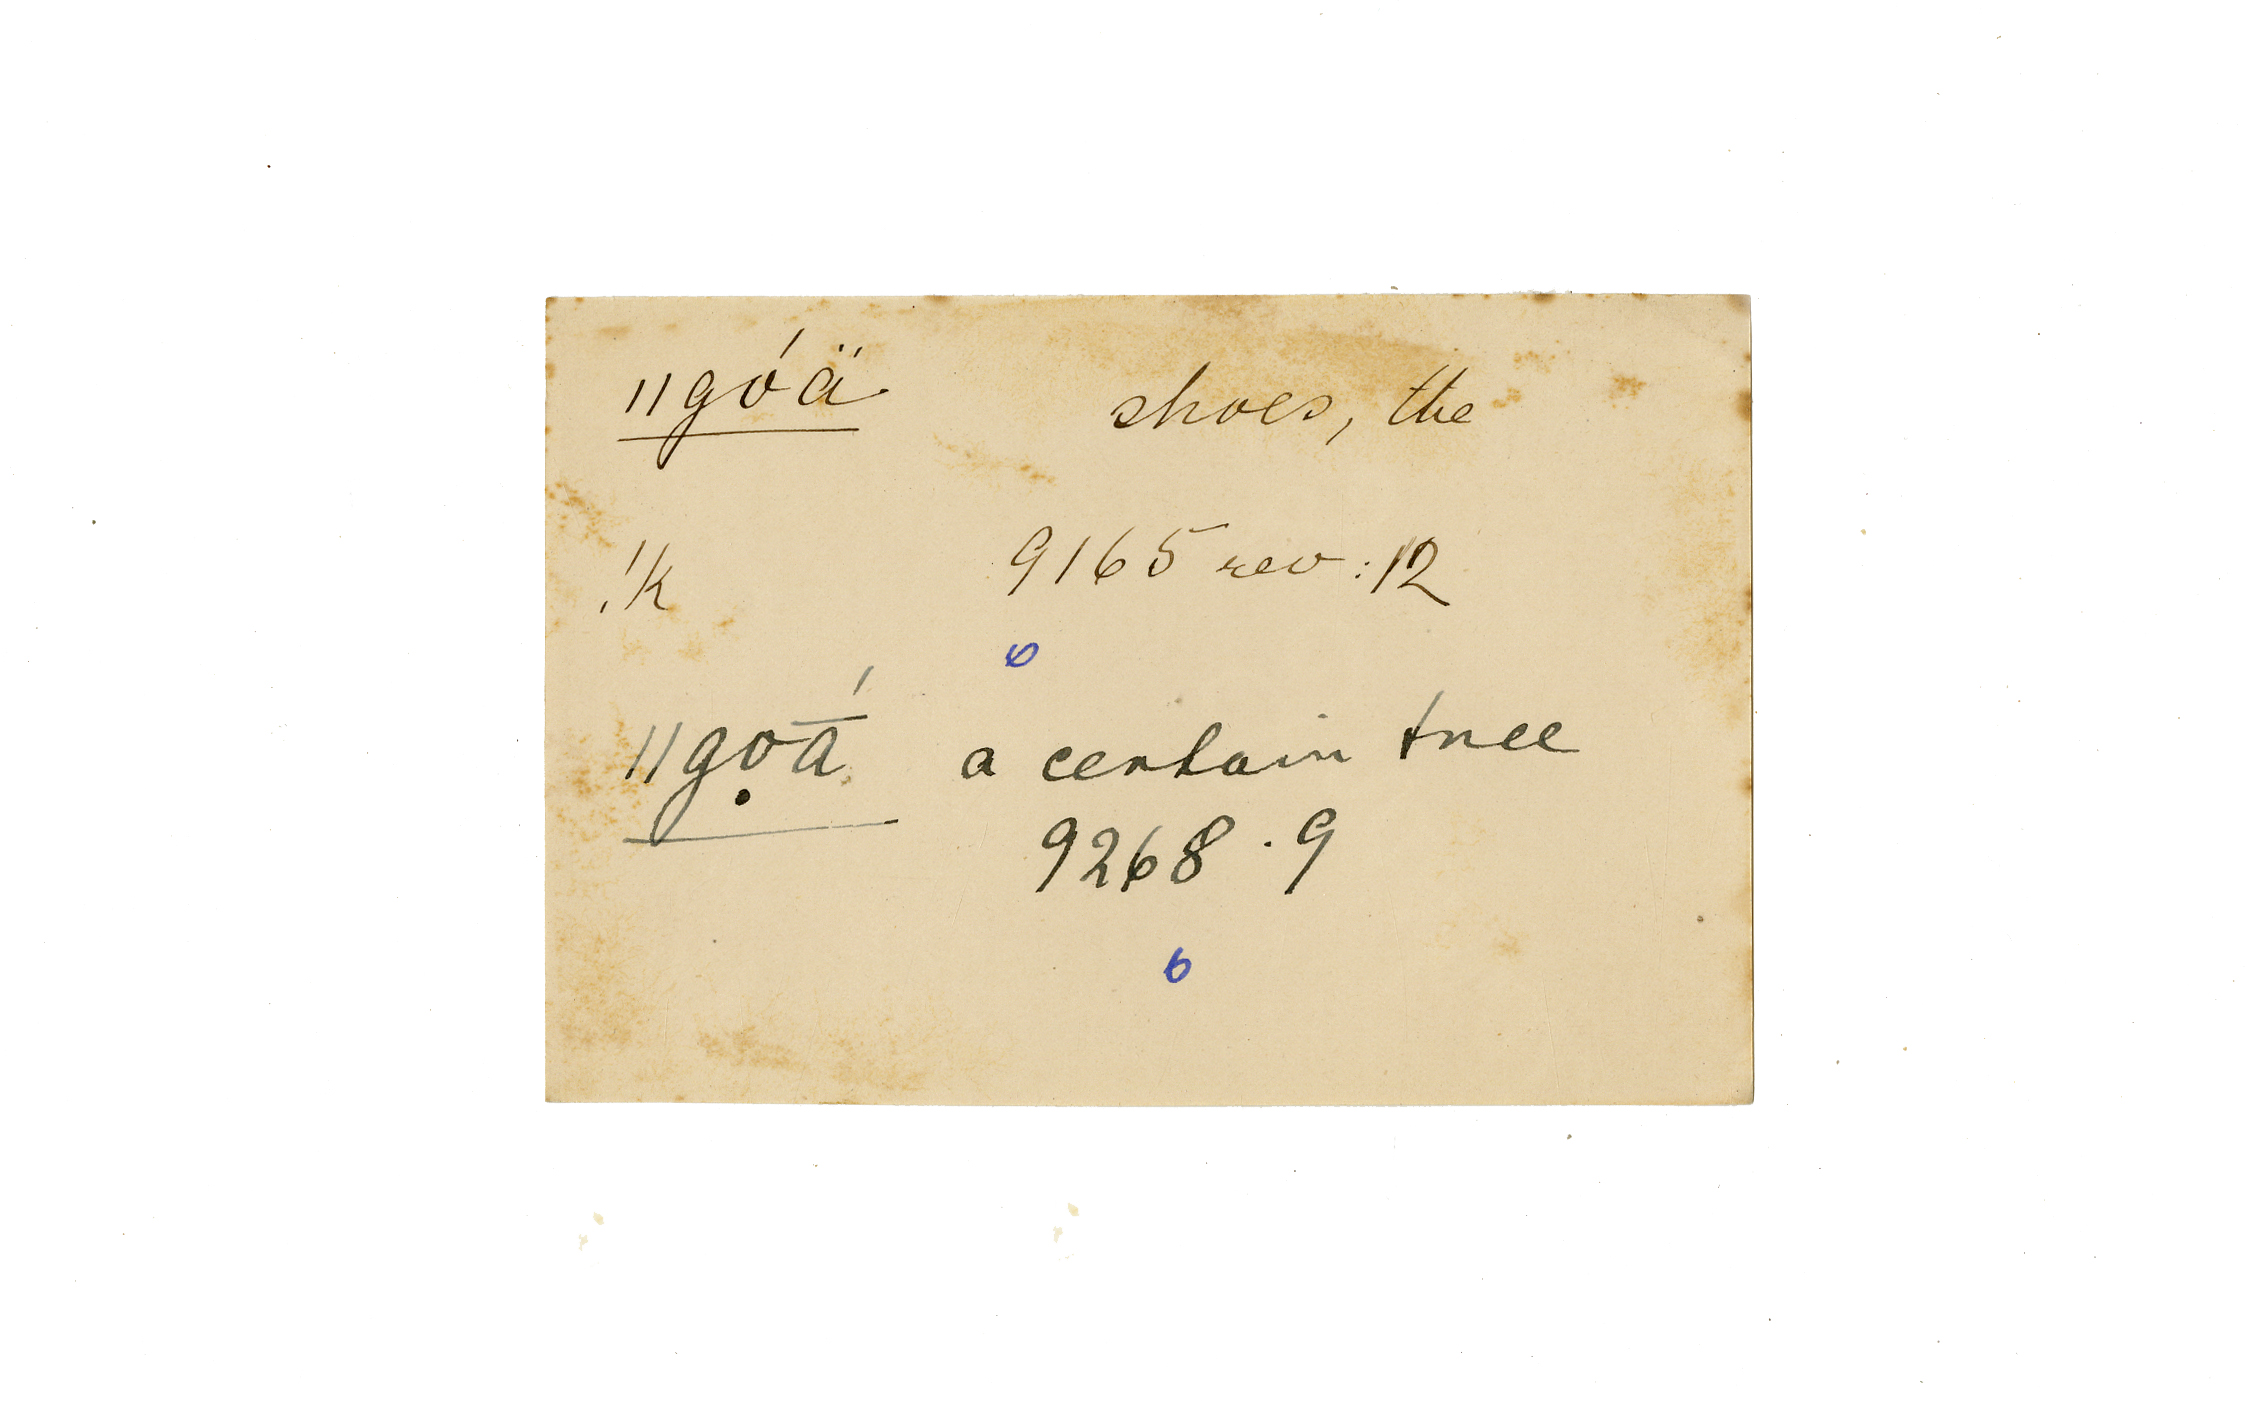 ǁgóä shoes, the
!k 9165 rev: 12
6
ǁgọā́ a certain tree
9268 . 9
6